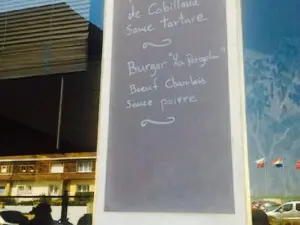 de Cabillaud
Sauce tartare
Burger "La Pergola"
Boeuf Charolais
Sauce poivre